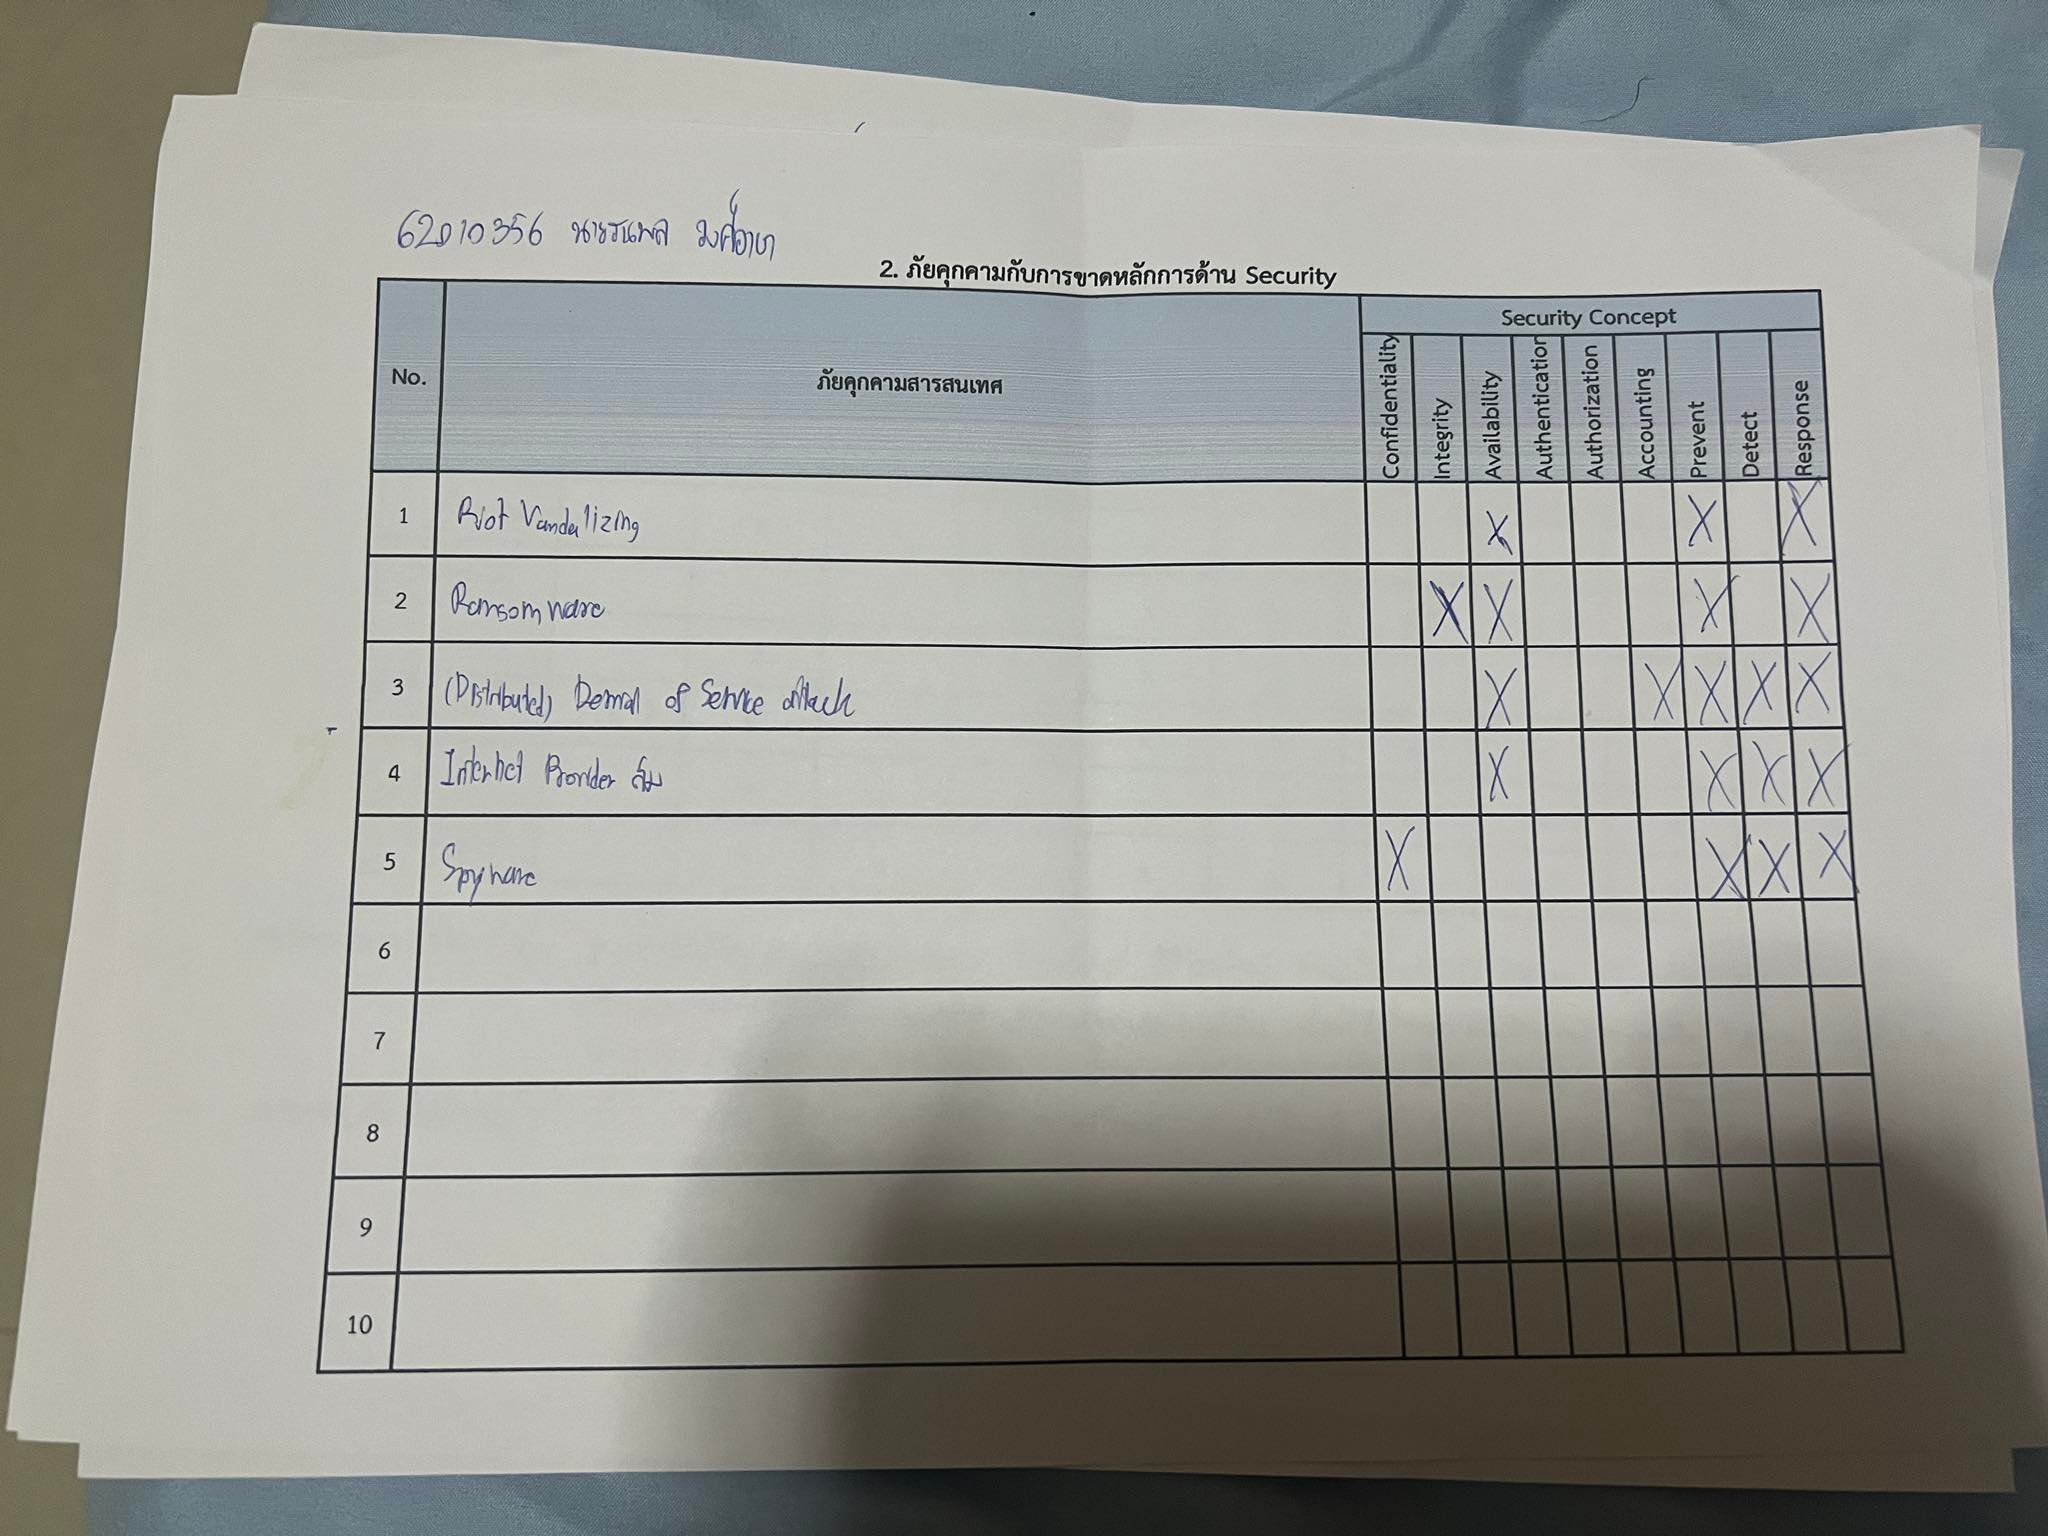 62010356 นายธนพล วงศ์อาษา
2. ภัยคุกคามกับการขาดหลักการด้าน Security
No.
ภัยคุกคามสารสนเทศ
Security Concept
Confidentiality
Integrity
Availability
Authentication
Authorization
Accounting
Prevent
Detect
Response
1 Riot Vandalizing X X X
2 Ransomware X X X X
3 (Distributed) Denial of Service attack X X X X X
4 Internet Provider ล่ม X X X X
5 Spyware X X X X
6
7
8
9
10